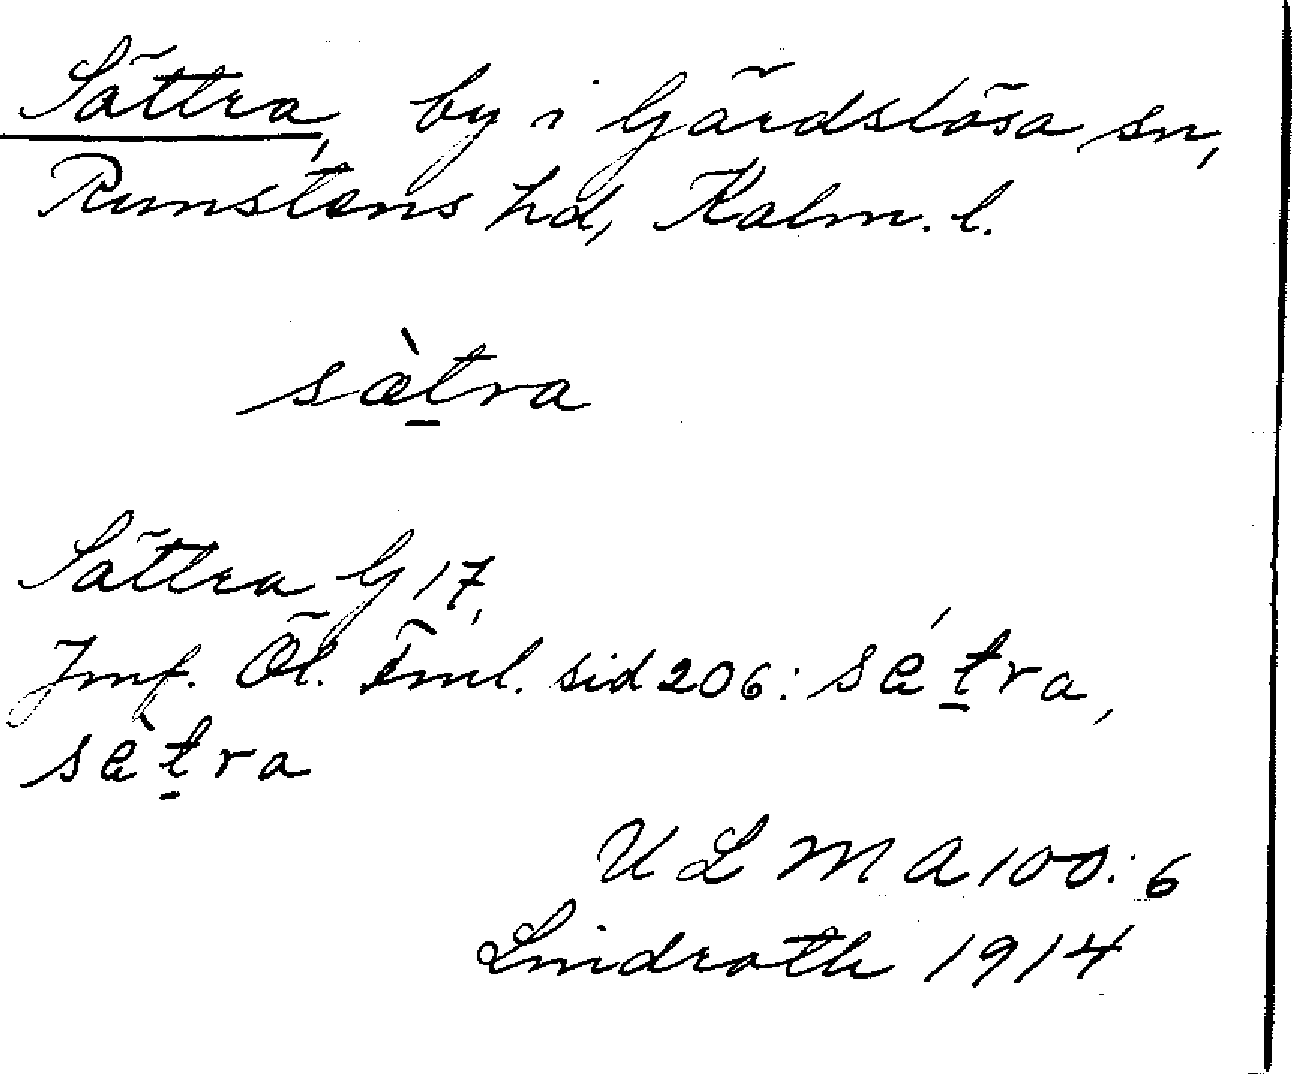 Sättra, by i Gärdslösa sn,
Runstens hd, Kalm. l.
sæ̀t̠ra
Sättra G 17,
Jmf. Öl. Fml. sid 206: sǽt̠ra,
sæ̀t̠ra
ULMA 100:6
Lindroth 1914